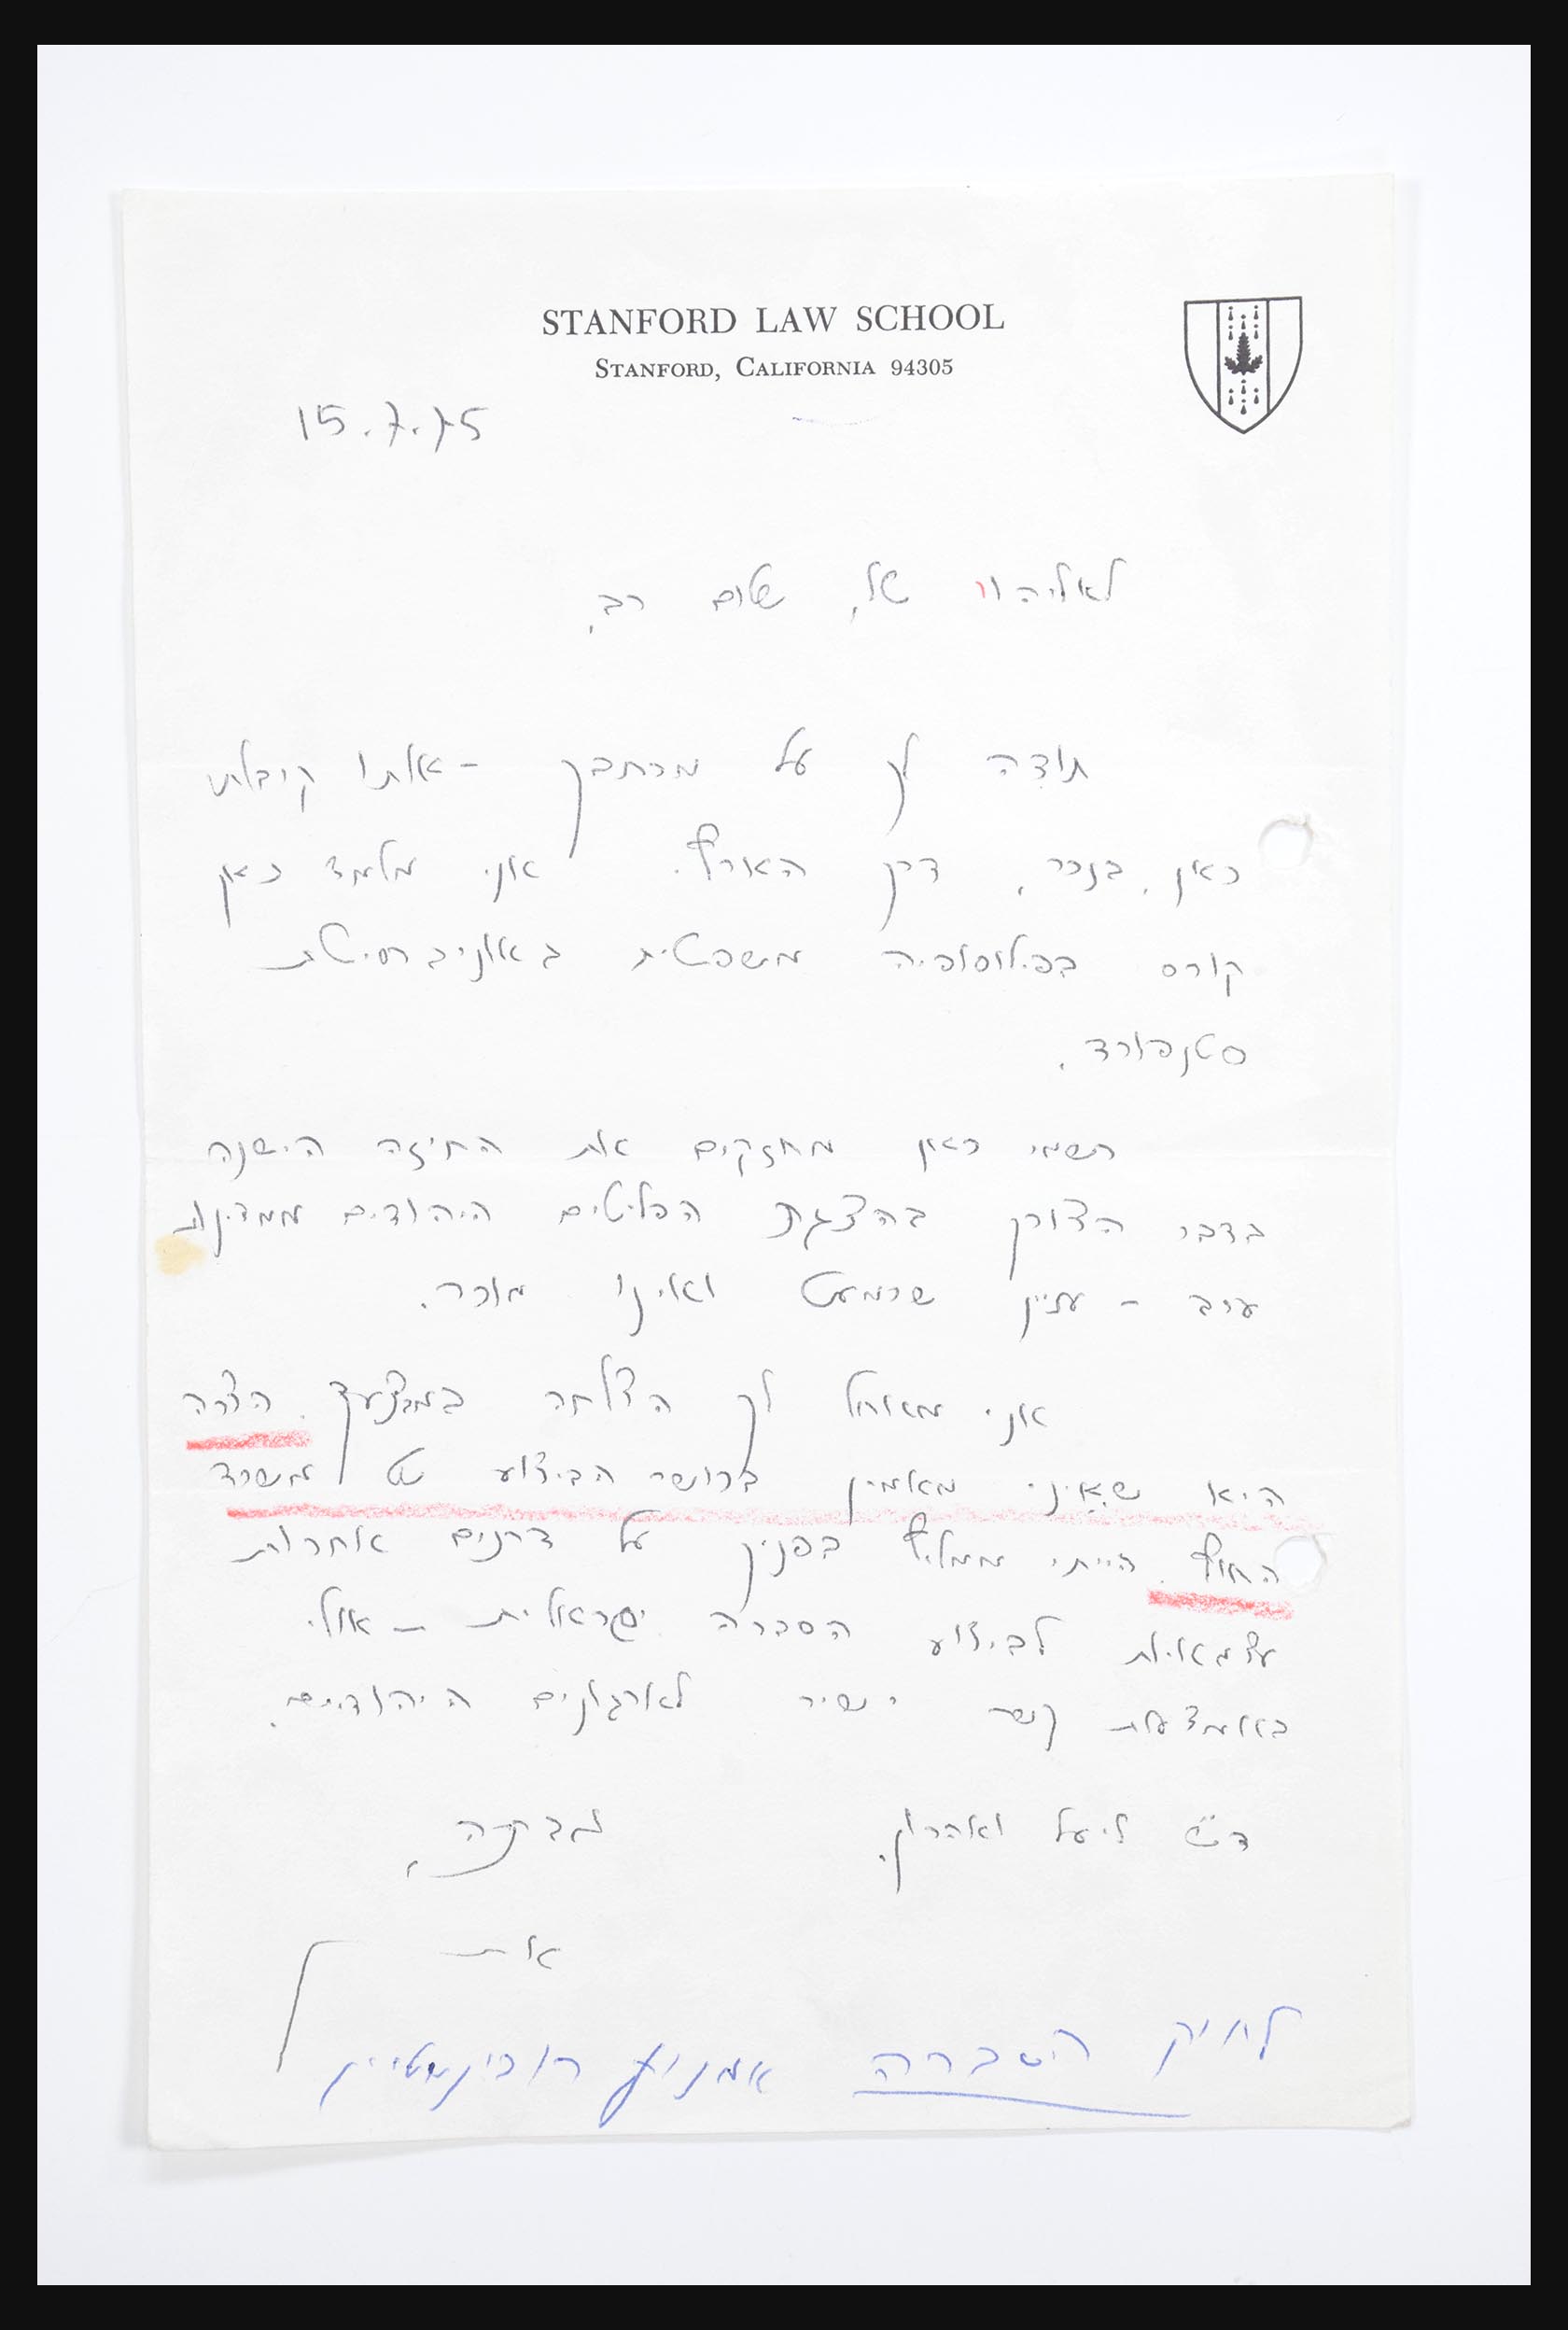 STANFORD LAW SCHOOL
STANFORD, CALIFORNIA 94305
15.7.75
לאליהו שלו, שלום רב,
תודה לך על מכתבך - אותו קיבלתי
כאן, בנכר, דרך הארץ. אני מלמד כאן
קורס בפילוסופיה משפטית באוניברסיטת
סטנפורד.
רשמי כאן מחזקים את התיזה הישנה
בדבר הצורך בהצגת הפליטים היהודים ממדינות
ערב - עניין שכמעט ואינו מוכר.
אני מאחל לך הצלחה במבצעך. הצרה
היא שאינני מאמין בכושר הביצוע של משרד
החוץ. הייתי ממליץ בפניך על דרכים אחרות
עצמאיות לביצוע הסברה ישראלית - אולי
באמצעות קשר ישיר לארגונים היהודיים.
ד"ש ליעל ואהרון.
בברכה,
לתיק הסברה אמנון רובינשטיין